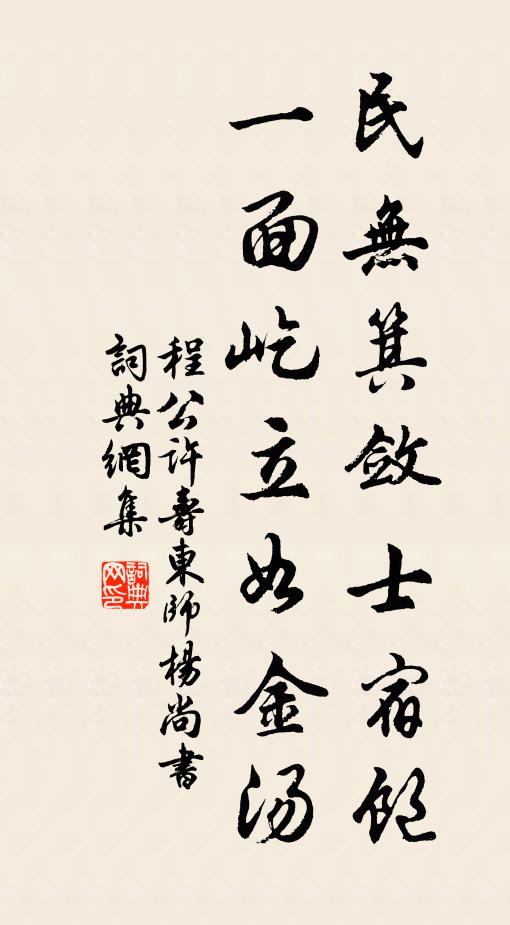 民無箕斂士宿飽
一面屹立如金湯
程公許壽東師楊尚書
詞典網集
詞典网印